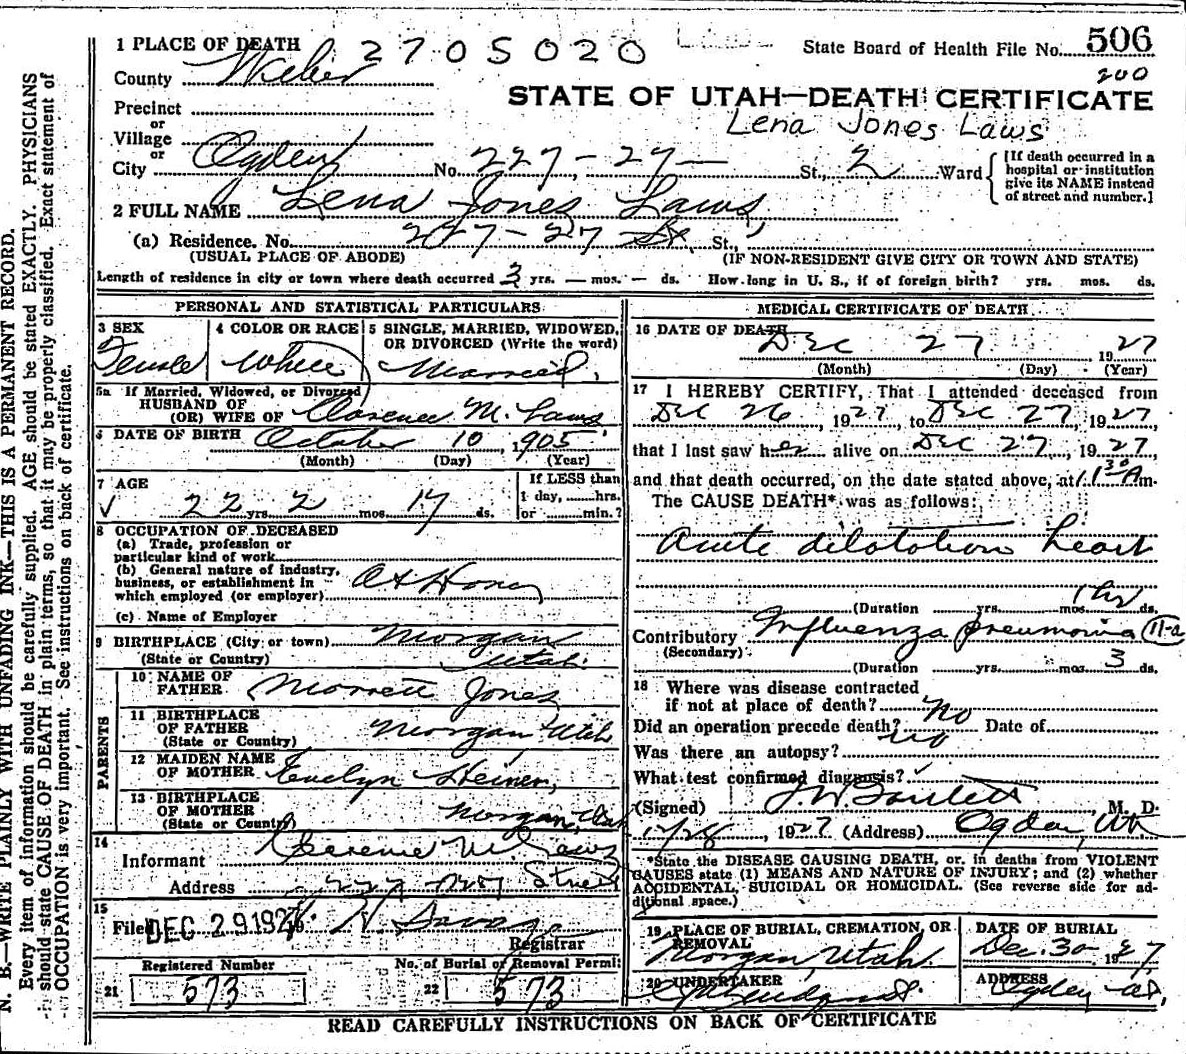 1 PLACE OF DEATH 2705020 State Board of Health File No. 506
County Weber 200
STATE OF UTAH—DEATH CERTIFICATE
Precinct
or
Lena Jones Laws
Village
or
City Ogden No. 227-27- St., 2 Ward [If death occurred in a hospital or institution give its NAME instead of street and number.]
2 FULL NAME Lena Jones Laws
(a) Residence. No. 227-27 St St.,
(USUAL PLACE OF ABODE) (IF NON-RESIDENT GIVE CITY OR TOWN AND STATE)
Length of residence in city or town where death occurred 3 yrs. — mos. — ds. How long in U. S., if of foreign birth? yrs. mos. ds.
PERSONAL AND STATISTICAL PARTICULARS
3 SEX 4 COLOR OR RACE 5 SINGLE, MARRIED, WIDOWED, OR DIVORCED (Write the word)
Female White Married.
5a If Married, Widowed, or Divorced
HUSBAND OF
(OR) WIFE OF Clarence M. Laws
6 DATE OF BIRTH October 10, 1905
(Month) (Day) (Year)
7 AGE If LESS than
1 day, hrs.
✓ 22 yrs. 2 mos. 17 ds. or min.?
8 OCCUPATION OF DECEASED
(a) Trade, profession or
particular kind of work
(b) General nature of industry,
business, or establishment in
which employed (or employer) At Home
(c) Name of Employer
9 BIRTHPLACE (City or town) Morgan
(State or Country) Utah.
PARENTS
10 NAME OF
FATHER Jones
11 BIRTHPLACE
OF FATHER Morgan Utah
(State or Country)
12 MAIDEN NAME
OF MOTHER Evelyn Heiner,
13 BIRTHPLACE
OF MOTHER Morgan, Utah
(State or Country)
14
Informant Clarence M. Laws
Address 227 Street
15
Filed DEC 29 1927
Registrar
Registered Number No. of Burial or Removal Permit
21 573 22 573
MEDICAL CERTIFICATE OF DEATH
16 DATE OF DEATH
Dec 27 1927
(Month) (Day) (Year)
17 I HEREBY CERTIFY, That I attended deceased from
Dec 26, 1927, to Dec 27, 1927
that I last saw her alive on Dec 27, 1927
and that death occurred, on the date stated above, at 1130 A m.
The CAUSE DEATH* was as follows:
Acute dilatation heart
1 hr
(Duration yrs. mos. ds.
Contributory Influenza pneumonia 11-a
(Secondary)
(Duration yrs. mos. 3 ds.
18 Where was disease contracted
if not at place of death? No
Did an operation precede death? no Date of
Was there an autopsy?
What test confirmed diagnosis?
(Signed) Bartlett, M. D.
, 1927 (Address) Ogden, Utah
*State the DISEASE CAUSING DEATH, or, in deaths from VIOLENT
CAUSES state (1) MEANS AND NATURE OF INJURY; and (2) whether
ACCIDENTAL, SUICIDAL OR HOMICIDAL. (See reverse side for additional space.)
19 PLACE OF BURIAL, CREMATION, OR REMOVAL DATE OF BURIAL
Morgan Utah. Dec. 30 1927,
20 UNDERTAKER ADDRESS
Ogden
READ CAREFULLY INSTRUCTIONS ON BACK OF CERTIFICATE
N. B.—WRITE PLAINLY WITH UNFADING INK—THIS IS A PERMANENT RECORD.
Every item of information should be carefully supplied. AGE should be stated EXACTLY. PHYSICIANS
should state CAUSE OF DEATH in plain terms, so that it may be properly classified. Exact statement of
OCCUPATION is very important. See instructions on back of certificate.